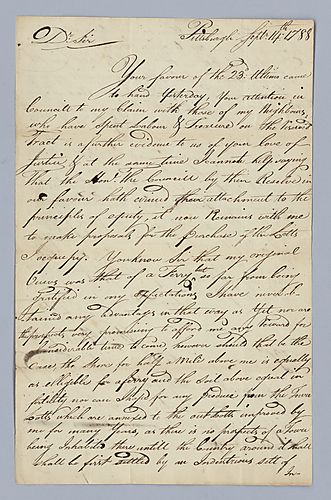 Pittsburgh Sept. 14th 1788
Dr Sir
Your favour of the 23 Ultimo came
to hand Yesterday, Your attention in
Councill to my Claim with those of my Neighbours
who have Spent Labour & Treasure on the
Tract is a further evidence to us of your Love of
Justice & at the same time I cannot help saying
That the Honl the Councill by their Resolve in
our favour hath evinced their attachment to the
principles of equity, it now Remains with me
to make proposals for the Purchase of the Lotts
I occupy. You know Sir that my original
Views was that of a Ferry so far from being
gratified in my expectations I have never ob-
tained any advantage in that way as Yet nor are
the prospects very promising to afford me any reward for
Considerable time to come, however should that be the
Case, the shore for half a Mile above me is equally
as elligible for a ferry and the Soil above equal in
fertility, nor can I hope for any produce from the Town
Lotts which are annexed to the outLotts improved by
me for many Years, as there is no prospect of a Town
being Inhabited there untill the Country around it shall
shall be first settled by an Industrious sett of